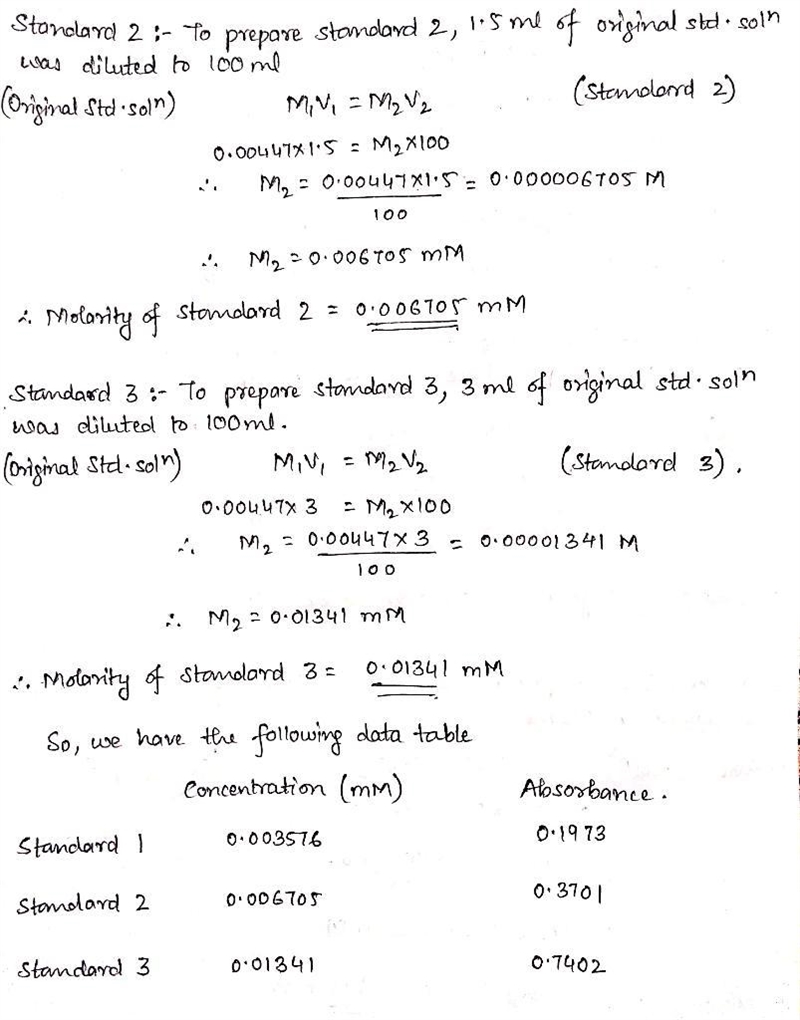 Standard 2 :- To prepare standard 2, 1.5 ml of original std. solⁿ
was diluted to 100 ml
(Original Std. solⁿ) M₁V₁ = M₂V₂ (Standard 2)
0.00447×1.5 = M₂×100
∴ M₂ = 0.00447×1.5 = 0.000006705 M
100
∴ M₂ = 0.006705 mM
∴ Molarity of standard 2 = 0.006705 mM
Standard 3 :- To prepare standard 3, 3 ml of original std. solⁿ
was diluted to 100ml.
(Original Std. solⁿ) M₁V₁ = M₂V₂ (Standard 3).
0.00447×3 = M₂×100
∴ M₂ = 0.00447×3 = 0.00001341 M
100
∴ M₂ = 0.01341 mM
∴ Molarity of standard 3 = 0.01341 mM
So, we have the following data table
Concentration (mM) Absorbance.
Standard 1 0.003576 0.1973
Standard 2 0.006705 0.3701
Standard 3 0.01341 0.7402